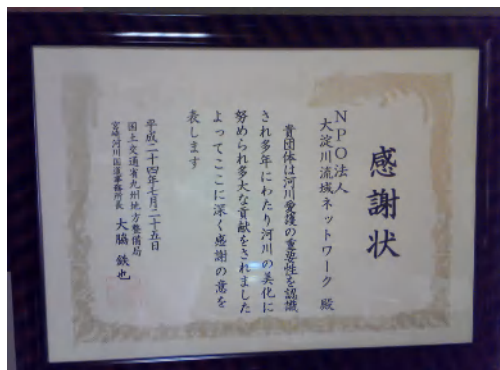 感謝状
NPO法人
大淀川流域ネットワーク 殿
貴団体は河川愛護の重要性を認識
され多年にわたり河川の美化に
努められ多大な貢献をされました
よってここに深く感謝の意を
表します
平成二十四年七月二十五日
国土交通省九州地方整備局
宮崎河川国道事務所長 大脇 鉄也